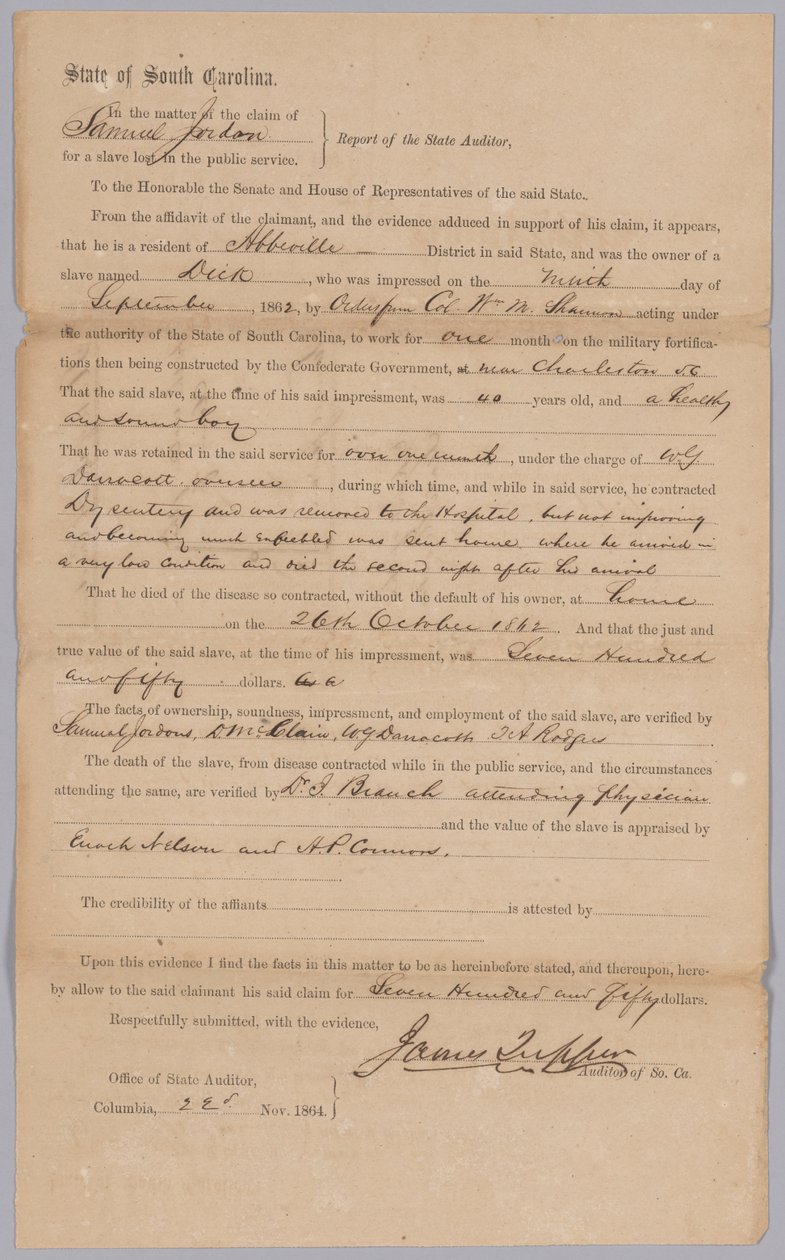 State of South Carolina.
In the matter of the claim of
Samuel Jordon
for a slave lost in the public service.
Report of the State Auditor,
To the Honorable the Senate and House of Representatives of the said State.
From the affidavit of the claimant, and the evidence adduced in support of his claim, it appears,
that he is a resident of Abbeville District in said State, and was the owner of a
slave named Dick, who was impressed on the ninth day of
September, 1862, by Orders from Col. Wm M. Shannon acting under
the authority of the State of South Carolina, to work for one month on the military fortifica-
tions then being constructed by the Confederate Government, at near Charleston SC
That the said slave, at the time of his said impressment, was 40 years old, and a healthy
and sound boy
That he was retained in the said service for over one month, under the charge of W G
Darracott overseer, during which time, and while in said service, he contracted
Dysentery and was removed to the Hospital, but not improving
and becoming much enfeebled was sent home where he arrived in
a very low condition and died the second night after his arrival
That he died of the disease so contracted, without the default of his owner, at home
on the 26th October 1862. And that the just and
true value of the said slave, at the time of his impressment, was Seven Hundred
and fifty dollars.
The facts of ownership, soundness, impressment, and employment of the said slave, are verified by
Samuel Jordons, D McClain, W G Darracott J A Rodges
The death of the slave, from disease contracted while in the public service, and the circumstances
attending the same, are verified by Dr. I. Branch attending Physician
and the value of the slave is appraised by
Enoch Nelson and A. P. Connors.
The credibility of the affiants is attested by
Upon this evidence I find the facts in this matter to be as hereinbefore stated, and thereupon, here-
by allow to the said claimant his said claim for Seven Hundred and fifty dollars.
Respectfully submitted, with the evidence,
James Tupper
Auditor of So. Ca.
Office of State Auditor,
Columbia, 22d. Nov. 1864.